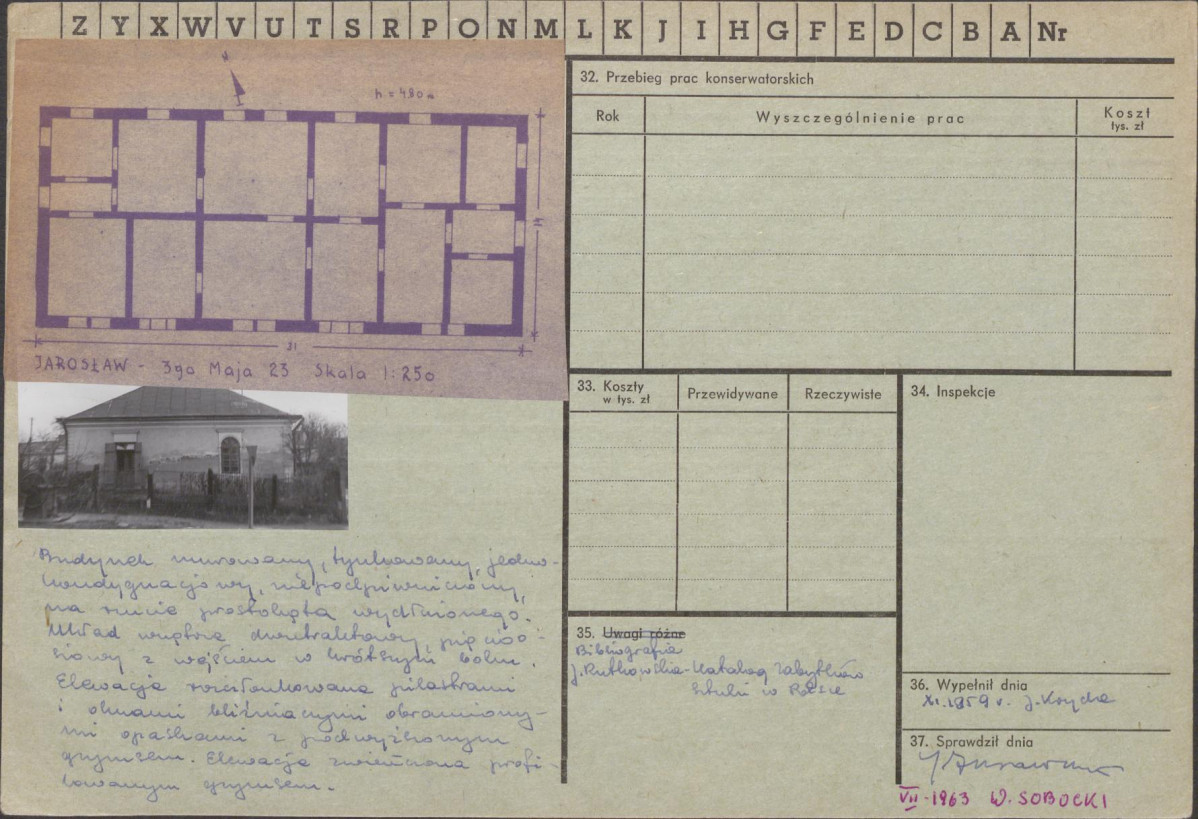 Z Y X W V U T S R P O N M L K J I H G F E D C B A Nr
N
h = 480
31
JAROSŁAW - 3go Maja 23 Skala 1:250
Budynek murowany, tynkowany, jedno-
kondygnacjowy, niepodpiwniczony,
na rzucie prostokąta wydłużonego.
Układ wnętrz dwutraktowy, pięcioo-
siowy z wejściem w krótszym boku.
Elewacja rozczłonkowana pilastrami
i oknami bliźniaczymi obramiony-
mi opaskami z podwyższonym
gzymsem. Elewacja zwieńczona profi-
lowanym gzymsem.
32. Przebieg prac konserwatorskich
Rok
Wyszczególnienie prac
Koszt
tys. zł
33. Koszty
w tys. zł
Przewidywane
Rzeczywiste
34. Inspekcje
35. Uwagi różne
Bibliografia
J. Rutkowska - Katalog Zabytków
Sztuki w Polsce
36. Wypełnił dnia
XI.1959 r. J.
37. Sprawdził dnia
VII-1963 W. SOBOCKI